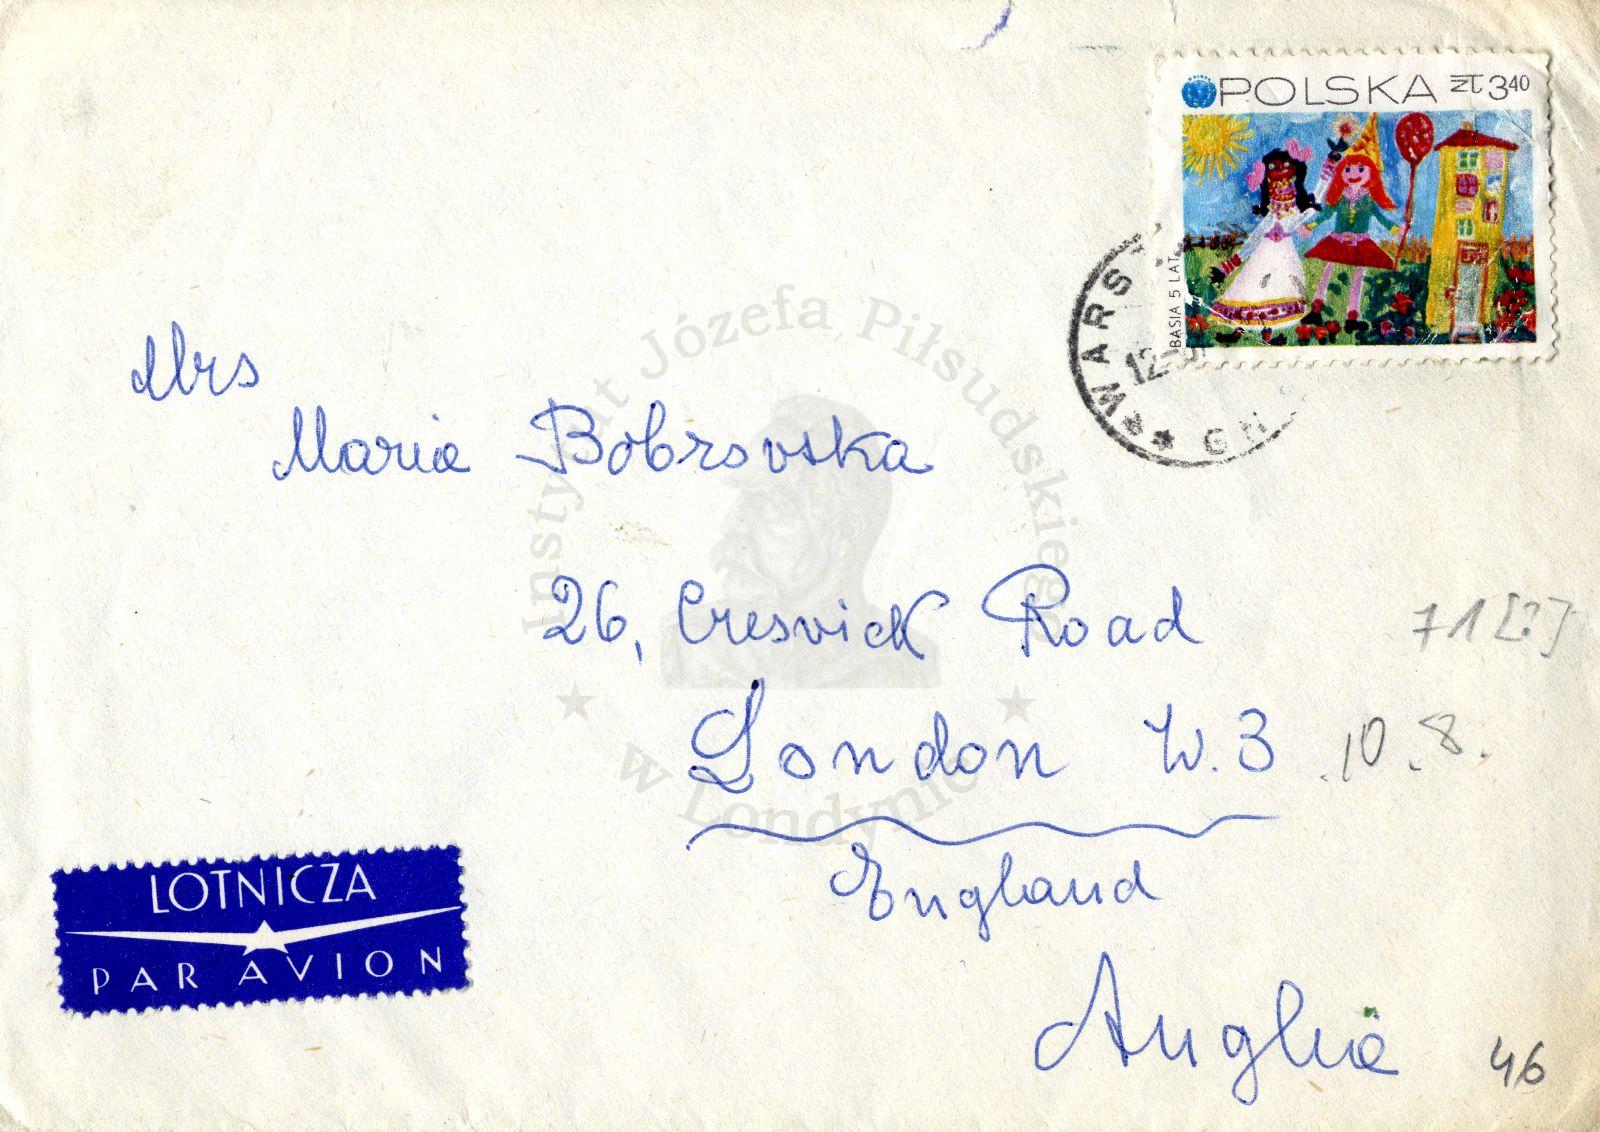 POLSKA ZŁ 3 40
BASIA 5 LAT
WARS
12
Mrs
Maria Bobrovska
26, Cresvick Road
71 [?]
London W. 3
.10.8.
England
Anglia
46
LOTNICZA
PAR AVION
Instytut Józefa Piłsudskiego
w Londynie